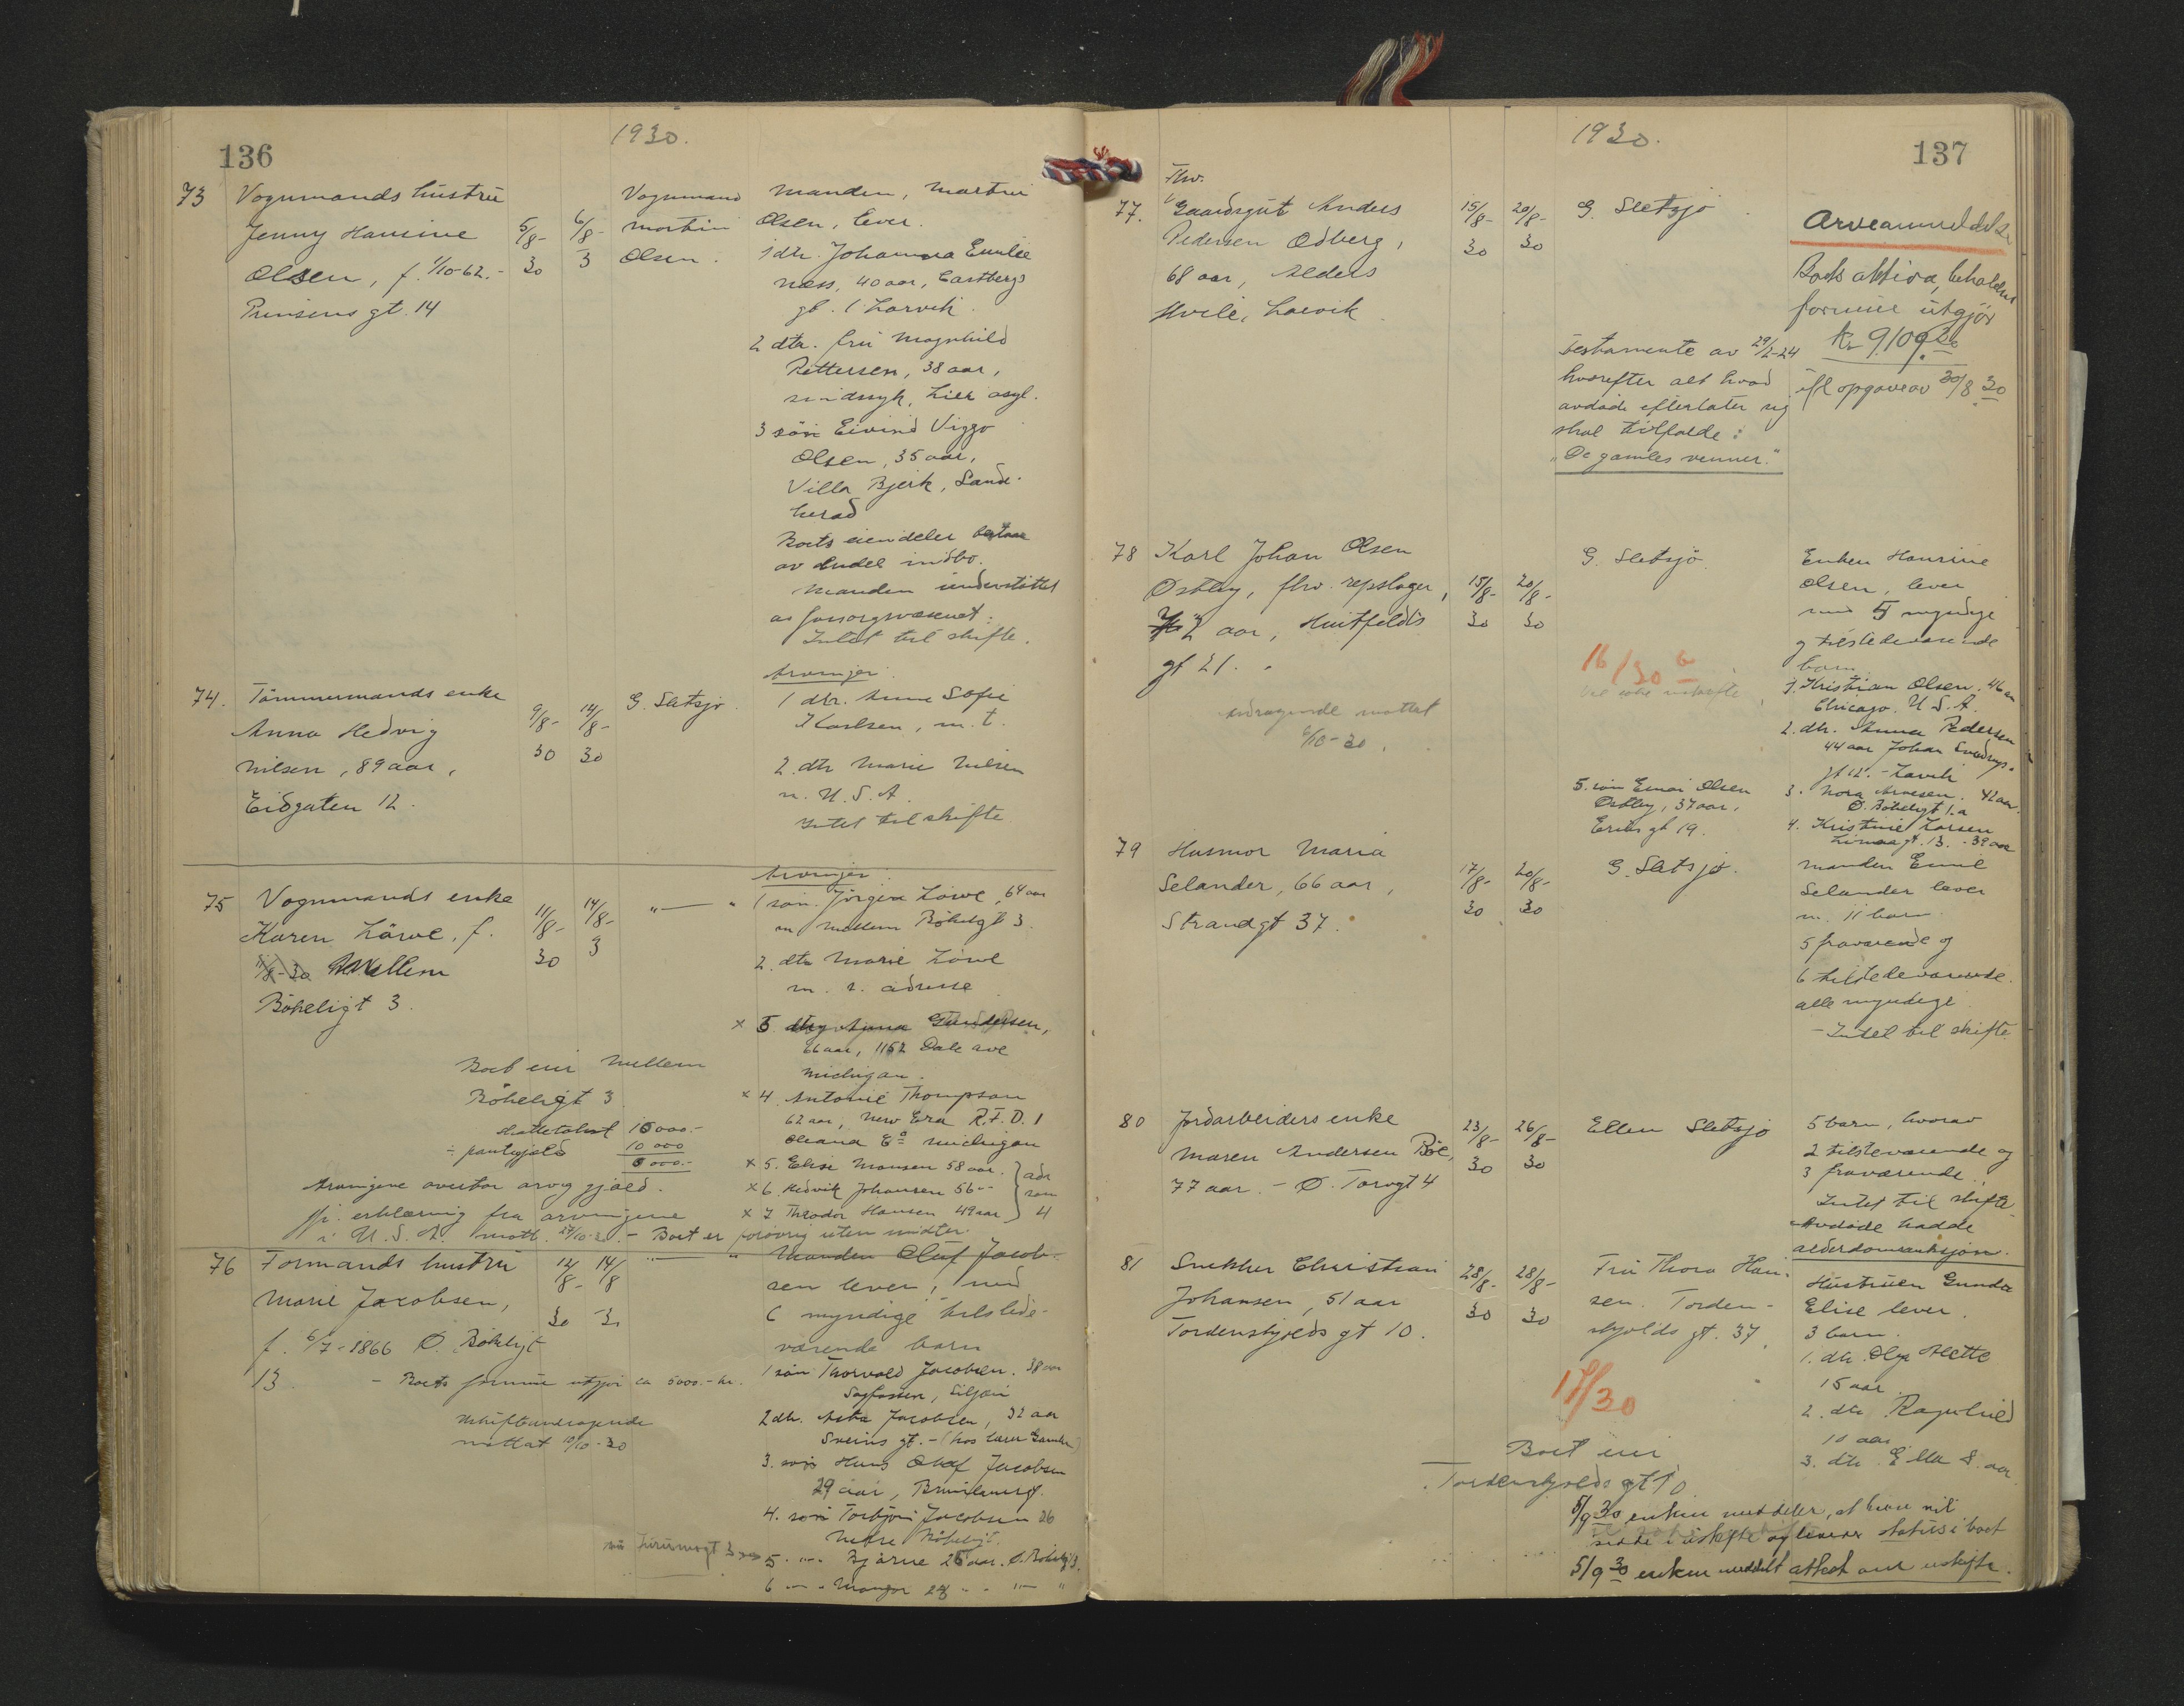 136
1930.
73 Vognmands hustru
Jenny Hansine
Olsen, f. 1/10-62.-
Prinsens gt. 14
5/8-30
6/8-3
Vognmand
Martin
Olsen.
Manden, Martin
Olsen, lever.
1 dtr. Johanna Emilie
Næss, 40 aar,
gt. 1. Larvik.
2 dtr. fru Magnhild
Pettersen, 38 aar,
sindssyk, Lier asyl.
3 søn Eivind Viggo
Olsen, 35 aar,
Villa Bjerk, Sande-
herad
Boets eiendeler bestaar
av endel indbo.
Manden understøttet
av forsorgsvæsenet.
Intet til skifte.
74. Tømmermands enke
Anna Hedvig
Nilsen, 89 aar,
Eidgaten 12.
9/8-30
14/8-30
G. Sletsjø.
Arvinger:
1 dtr. Anne Sofie
Karlsen, m. t.
2. dtr Marie Nilsen
n. U.S.A.
Intet til skifte.
75 Vognmands enke
Karen Löwe, f.
11/8-30 Mellem
Bökeligt 3.
11/8-30
14/8-3
"—"
Arvinger:
1 søn. Jörgen Löwe, 64 aar
m. Mellem Bökeligt 3.
2. dtr Marie Löwe
m. s. adresse
x 3 dtr Anna Gundersen,
66 aar, 1152 Dale ave
Michigan.
x 4. Antonie Thompson
62 aar, New Era R.F.D. 1
Oceana Co Michigan
x 5. Elise Monsen 58 aar.
x 6. Hedvik Johansen 56 "
x 7 Theodor Hansen 49 aar
adr som 4
Boet eier Mellem
Bökeligt 3
Skattetakst 16000.-
÷ pantegjeld 10 000
6 000.-
Arvingene overtar arv og gjæld.
erklæring fra arvingene
i U.S.A. mott. 27/10-30. - Boet er forøvrig uten midler.
76 Formands hustru
Marie Jacobsen,
f. 6/7-1866 Ø. Bökeligt
13
12/8-30
14/8-3
"—"
Manden Oluf Jacob-
sen lever, med
6 myndige tilstede-
værende barn
1 søn Thorvald Jacobsen. 38 aar
Sagfossen, Siljan
2 dtr. Asta Jacobsen, 32 aar
Sveins gt. - (hos lærer
3. søn Hans Olaf Jacobsen
29 aar,
4. søn Torbjørn Jacobsen 26
Nedre Bökeligt.
5. "-" Bjarne 25 aar. Ø. Bökeligt 13.
6 "-" Mangor 23 "- "-"
- Boets formue utgjør ca 5000.- kr.
Uskifteandragende
mottat 10/10-30
137
1930.
77. Fhv.
Gaardsgut Anders
Pedersen Odberg,
68 aar, Alders
Hvile, Larvik.
15/8-30
20/8-30
G. Sletsjø
Testamente av 29/2-24
hvorefter alt hvad
avdøde efterlater sig
skal tilfalde:
"De gamles venner."
Arveanmeldelse
Boets aktiva, beholdne
formue utgjør
kr. 9109.
ifl opgave av 30/8 30
78 Karl Johan Olsen
Østby, fhv. repslager,
72 aar, Huitfeldts
gt 21.
15/8-30
20/8-30
G. Sletsjø
16/30 b
Andragende mottat
6/10-30.
Enken Hansine
Olsen, lever
med 5 myndige
og tilstedeværende
barn
1. Kristian Olsen. 46 aar
Chicago. U.S.A.
2. dtr. Anna Pedersen
44 aar Johan Sverdrups
gt 12. - Larvik
3. Nora Arnesen. 42 aar.
Ø. Bökeligt 1.a
4. Kristine Larsen
gt. 13. - 39 aar
5. søn Einar Olsen
Østby, 37 aar,
Eriks gt 19.
79 Husmor Maria
Selander, 66 aar,
Strandgt 37.
17/8-30
20/8-30
G. Sletsjø.
Manden Emil
Selander lever
m. 11 barn.
5 fraværende og
6 tilstedeværende.
alle myndige
- Intet til skifte.
80 Jordarbeiders enke
Maren Andersen Bøe,
77 aar. - Ø. Torvgt 4
23/8-30
26/8-30
Ellen Sletsjø
5 barn, hvorav
2 tilstevœrende og
3 fraværende.
Intet til skifte.
Avdøde hadde
alderdomspensjon.
81 Snekker Christian
Johansen, 51 aar
Tordenskjolds gt 10.
28/8-30
28/8-30
Fru Thora Han-
sen. Torden-
skjolds gt. 37.
17/30
Hustruen Gunda
Elise lever.
3 barn.
1. dtr. Olga Mette
15 aar.
2. dtr Ragnhild
10 aar
3. dtr. Ella 8. aar.
Boet eier
Tordenskjolds gt 10
5/9 30 enken meddeler, at hun vil
sidde i uskifte og leverer status i boet
5/9 30 enken meddelt attest om uskifte.